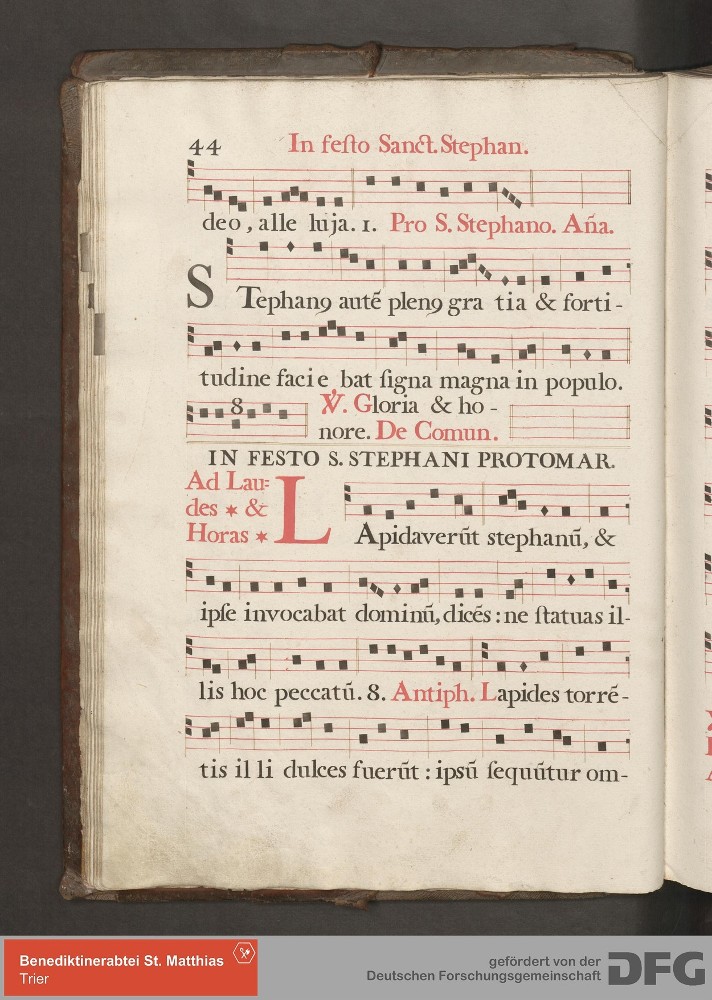 44 In feſto Sanct. Stephan.
deo, alle luja. 1. Pro S. Stephano. An̄a.
STephanꝯ autē plenꝯ gra tia & forti-
tudine faci e bat ſigna magna in populo.
8 ℣. Gloria & ho-
nore. De Comun.
IN FESTO S. STEPHANI PROTOMAR.
Ad Lau=
des * &
Horas *
LApidaverūt stephanū, &
ipſe invocabat dominū, dicēs : ne ſtatuas il-
lis hoc peccatū. 8. Antiph. Lapides torrē-
tis il li dulces fuerūt : ipsū ſequūtur om-
Benediktinerabtei St. Matthias
Trier
gefördert von der
Deutschen Forschungsgemeinschaft
DFG